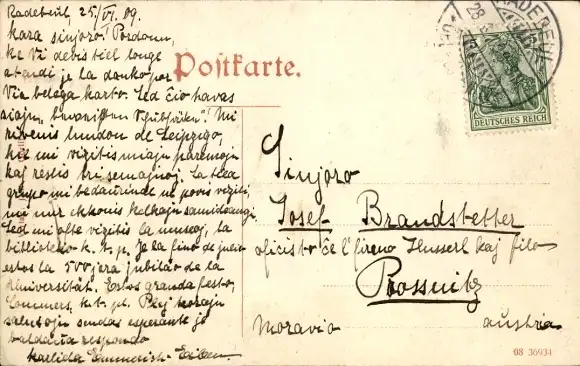 Radebeul 25/VI. 09.
kara sinjoro! Pardonu,
ke Vi devis tiel longe
atendi je la danko por
Via belega karto. Sed ĉio havas
siajn,
Mi
ĵus revenis lundon de Leipzigo,
kie mi vizitis miajn parencojn
kaj restis tri semajnoj. La tiea
grupo mi bedaŭrinde ne povis viziti,
mi nur ekkonis kelkajn samideanoj.
Sed mi ofte vizitis la muzeoj, la
biblioteko k. t. p. Je la fino de julio
estos la 500jera jubileo de la
Universität. Estos granda festo,
Commers, k. t. p. Plej korajn
salutojn sendas esperante je
baldaŭa respondo
Postkarte.
RADEBEUL
DEUTSCHES REICH
Sinjoro
Josef Brandstetter
oficisto ĉe l' firmo Husserl kaj filo
Prossnitz
Moravio aŭstrio
08 36934